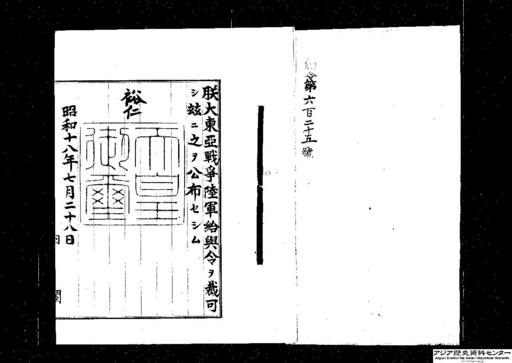 第六百二十五號
朕大東亞戰爭陸軍給與令ヲ裁可
シ玆ニ之ヲ公布セシム
裕仁
天皇
御璽
昭和十八年七月二十八日
アジア歴史資料センター
Japan Center for Asian Historical Records